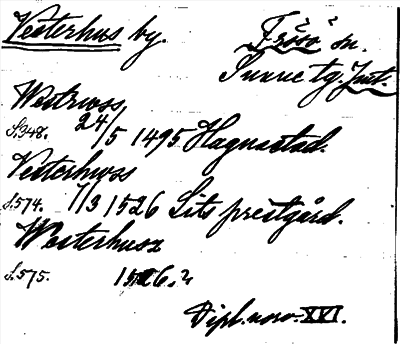 Vesterhus by. Frösö sn.
Sunne tg. Jmt.
Westrwss
S.348. 24/5 1495 Hagnastad.
Vesterhwss
S.574. 7/3 1526 Lits prestgård.
Westerhusz
S.575. 1526.?
Dipl. norv. XVI.